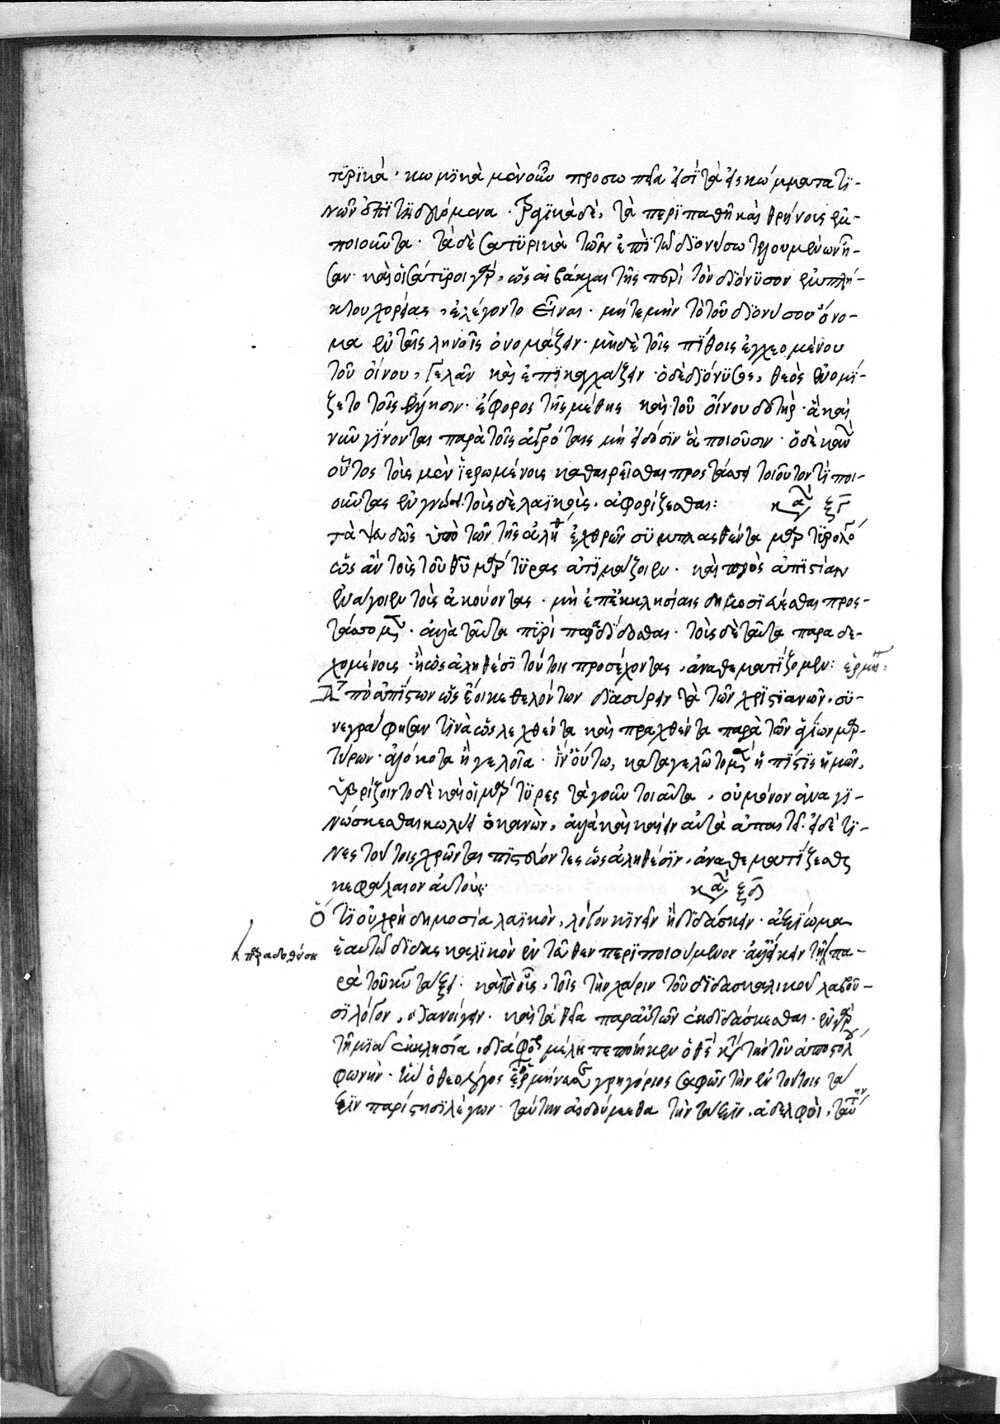 τϋρϊκά· κωμϊκὰ μὲν οὖν προσωπεῖα εἰσὶ τὰ εἰς κώμματά τϊ-
νῶν ἐπϊτηδευόμενα· τραγϊκὰ δὲ, τὰ περϊπαθῆ καὶ θρήνοις ἐμ-
ποιοῦντα· τὰ δὲ σατϋρικὰ τῶν ἐπὶ τῶ διονύσω τελουμένων ἦ-
σαν· καὶ οἱ σάτϋροι γὰρ, ὡς αἱ βάκχαι τῆς περὶ τὸν διόνϋσον ἐμπλή-
κτου χορείας, ἐλέγοντο εἶναι· μήτε μὴν τὸ τοῦ διονύσου ὄνο-
μα ἐν ταῖς ληνοῖς ὀνομάζειν· μηδὲ τοῖς πϊθοις ἐγχεομένου
τοῦ οἴνου, γελᾶν καὶ ἐπϊκαγχάζειν· ὁ δὲ διόνϋσος, θεὸς ἐνομί-
ζετο τοῖς ἕλλησιν· ἔφορος τῆς μέθης καὶ τοῦ οἴνου δοτὴρ· ἃ καὶ
νῦν γϊνονται παρὰ τοῖς ἀγρόταις μὴ εἰδόσϊν ἃ ποιοῦσιν· ὁ δὲ κανὼν
οὗτος τοὺς μὲν ἱερωμένους καθαιρεῖσθαι προστάσσει τοιοῦτόν τϊ ποι-
οῦντας ἐν γνώσει· τοὺς δὲ λαϊκοὺς, ἀφορίζεσθαι: κανὼν ξγ
τὰ ψευδῶς ὑπὸ τῶν τῆς ἀληθείας ἐχθρῶν συμπλασθέντα μαρτϋρολόγια
ὡς ἂν τοὺς τοῦ θῦ μάρτϋρας ἀτϊμάζοιεν· καὶ πρὸς ἀπϊστίαν
ἐνάγοιεν τοὺς ἀκούοντας· μὴ ἐπ' ἐκκλησίαις δημοσϊεύεσθαι προς-
τάσσομεν· ἀλλὰ ταῦτα πϋρὶ παραδίδοσθαι· τοὺς δὲ ταῦτα παραδε-
χομένους· ἢ ὡς ἀληθέσϊ τούτοις προσέχοντας, ἀναθεματϊζομεν: ἑρμη:
Ὑπὸ ἀπίστων ὡς ἔοικε θελόντων διασύρειν τὰ τῶν χρϊστϊανῶν, συ-
νεγράφησάν τϊνὰ ὡς λεχθέντα καὶ πραχθέντα παρὰ τῶν ἁγίων μαρ-
τύρων· ἀλόκοτα ἢ γελοῖα· ἵν' οὕτω, καταγελῶτο μὲν ἡ πϊστϊς ἡμῶν,
ὑβρίζοιντο δὲ καὶ οἱ μάρτϋρες τὰ γοῦν τοιαῦτα, οὐ μόνον ἀναγϊ-
νώσκεσθαι κωλύει ὁ κανὼν, ἀλλὰ καὶ καίειν αὐτὰ ἀπαιτεῖ· εἰ δέ τϊ-
νες τούτοις χρῶνται πϊστεύοντες ὡς ἀληθέσϊν, ἀναθεματϊζεσθαι
κεφάλαιον αὐτούς: κανὼν ξδ
Ὅτϊ οὐ χρὴ δημοσία λαϊκὸν, λόγον κινεῖν ἢ διδάσκειν· ἀξϊωμα
ἑαυτῶ διδασκαλϊκὸν ἐντεῦθεν περϊποιούμενον· ἀλλ' εἴκειν τῆ πα-
ρὰ τοῦ κῦ τάξει· καὶ τὸ οὖς, τοῖς τὴν χάριν τοῦ διδασκαλικοῦ λαβοῦ-
σϊ λόγου, διανοίγειν· καὶ τὰ θεῖα παρ' αὐτῶν ἐκδιδάσκεσθαι· ἐν γὰρ
τῆ μϊα ἐκκλησία, διάφορα μέλη πεποίηκεν ὁ θς κατὰ τὴν τοῦ ἀποστόλου
φωνὴν· ἣν ὁ θεολόγος ἑρμηνεύων γρηγόριος σαφῶς τὴν ἐν τούτοις τά
ξϊν παρίστησϊ λέγων· ταύτην αἰδούμεθα τὴν τάξϊν, ἀδελφοὶ, ταύτην